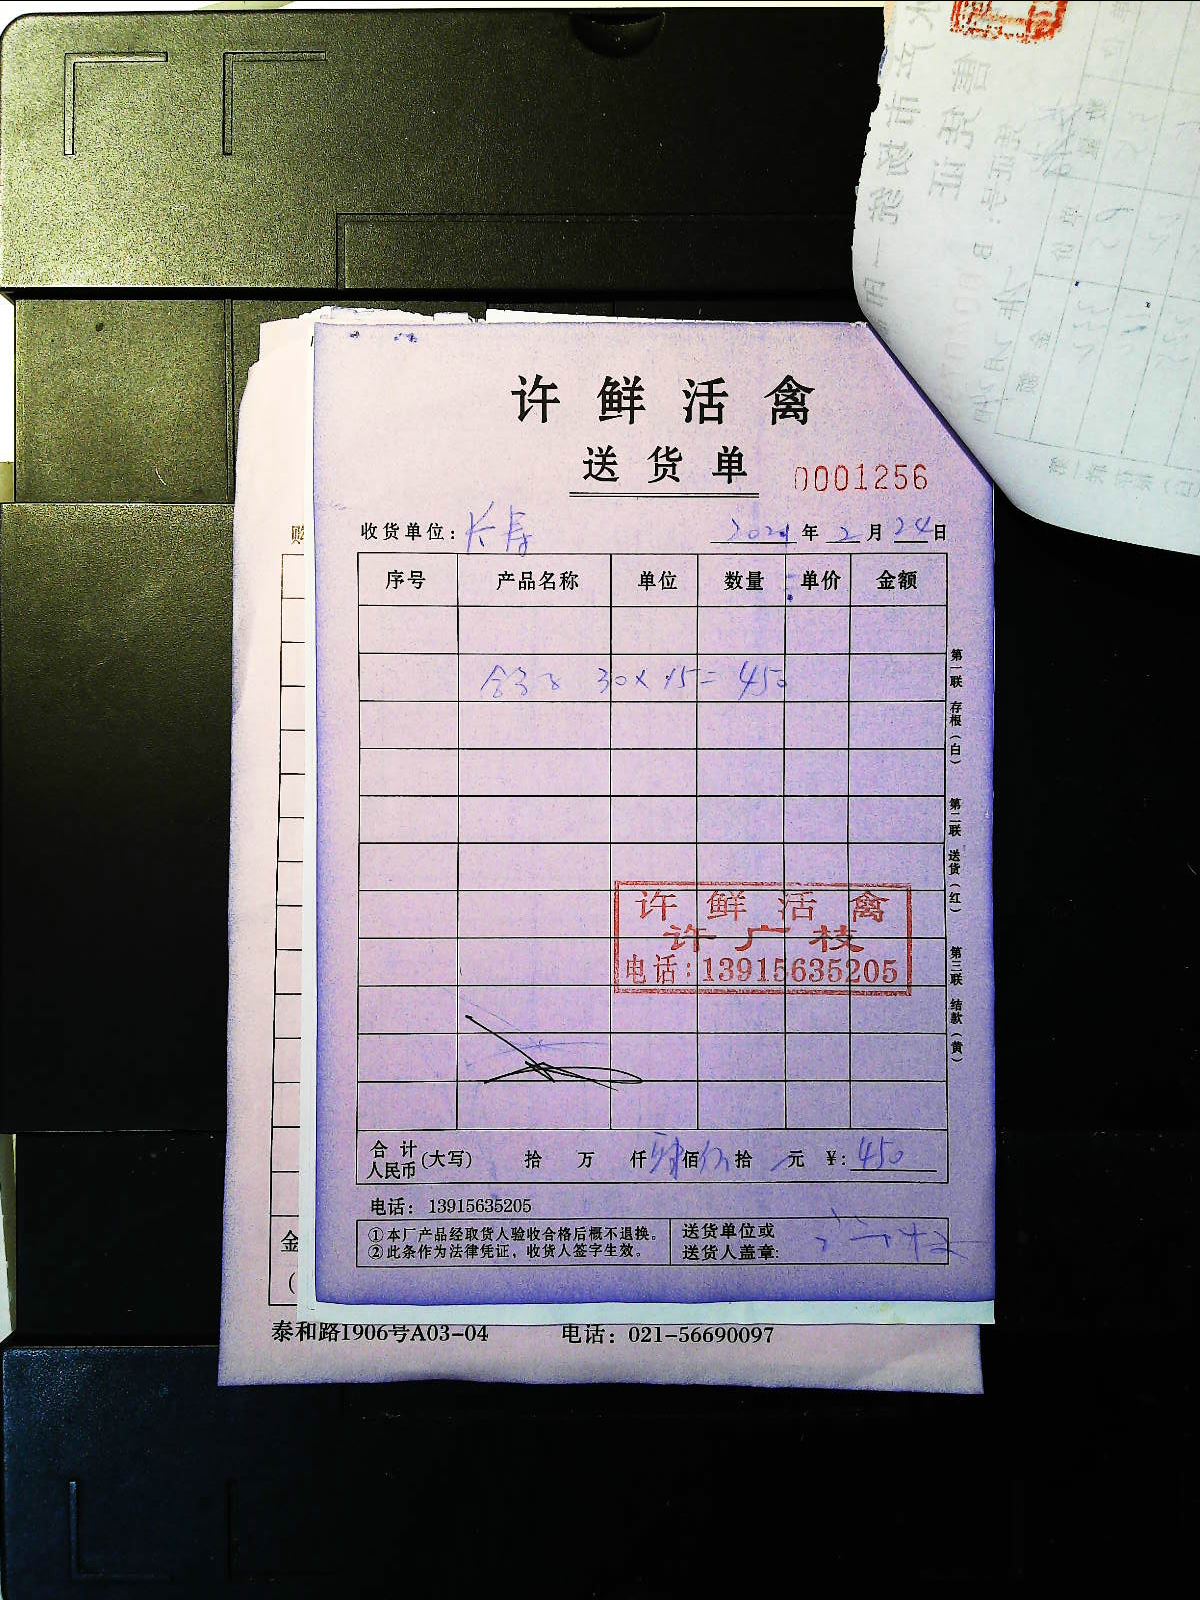 许鲜活禽
送货单 0001256
收货单位: 长寿 2021年2月24日
序号 产品名称 单位 数量 单价 金额
30×15=450
许鲜活禽
许广枝
电话:13915635205
合计人民币(大写) 拾 万 仟 肆佰伍拾 元 ¥:450
电话: 13915635205
①本厂产品经取货人验收合格后概不退换。
②此条作为法律凭证,收货人签字生效。
送货单位或
送货人盖章:
第一联 存根(白) 第二联 送货(红) 第三联 结款(黄)
泰和路1906号A03-04 电话: 021-56690097